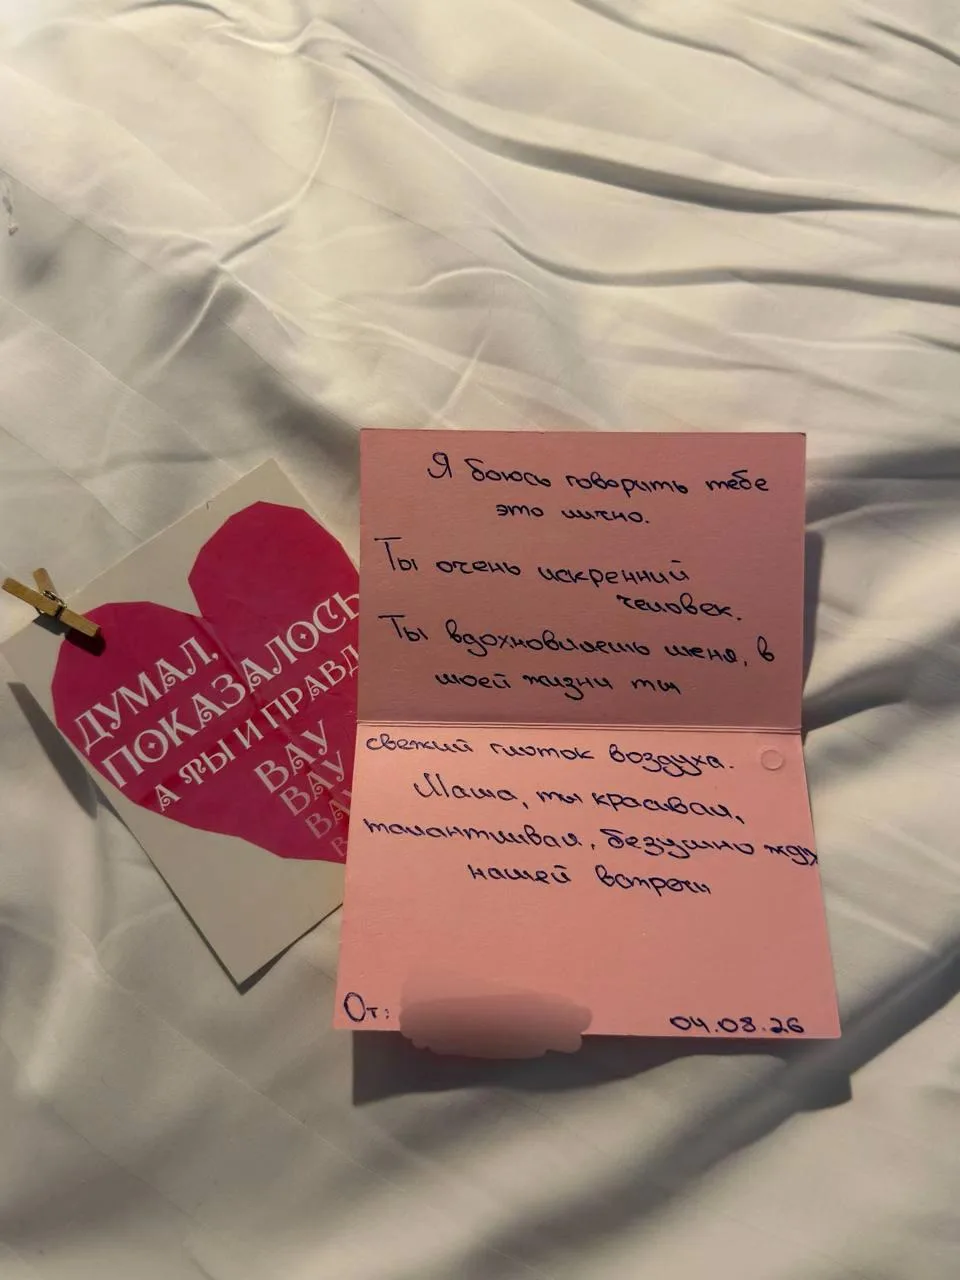 ДУМАЛ,
ПОКАЗАЛОСЬ
А ТЫ И ПРАВД
ВАУ
ВАУ
ВАУ
В
Я боюсь говорить тебе
это лично.
Ты очень искренний
человек.
Ты вдохновляешь меня, в
моей жизни ты
свежий глоток воздуха.
Маша, ты красивая,
талантливая, безумно жду
нашей встречи
От:
04.08.26